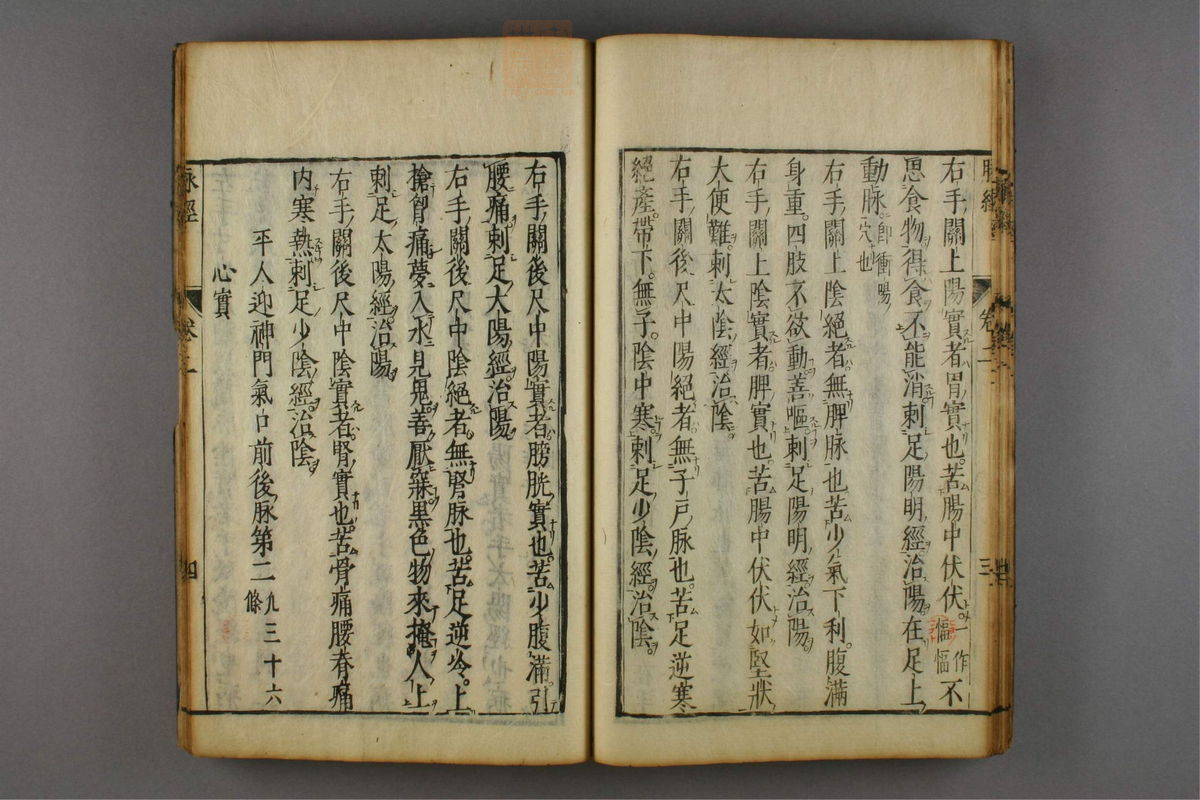 脉經
卷二
三
右手關上陽實者胃實也苦腸中伏伏一作愊愊不
思食物得食不能消刺足陽明經治陽在足上
動脉即衝陽穴也
右手關上陰絕者無脾脉也苦少氣下利腹滿
身重四肢不欲動善嘔刺足陽明經治陽
右手關上陰實者脾實也苦腸中伏伏如堅狀
大便難刺太陰經治陰
右手關後尺中陽絕者無子戶脉也苦足逆寒
絕產帶下無子陰中寒刺足少陰經治陰
右手關後尺中陽實者膀胱實也苦少腹滿引
腰痛刺足太陽經治陽
右手關後尺中陰絕者無腎脉也苦足逆冷上
搶胷痛夢入水見鬼善厭寐黑色物來掩人上
刺足太陽經治陽
右手關後尺中陰實者腎實也苦骨痛腰脊痛
内寒熱刺足少陰經治陰
平人迎神門氣口前後脉第二凡三十六條
心實
脉經
卷二
四